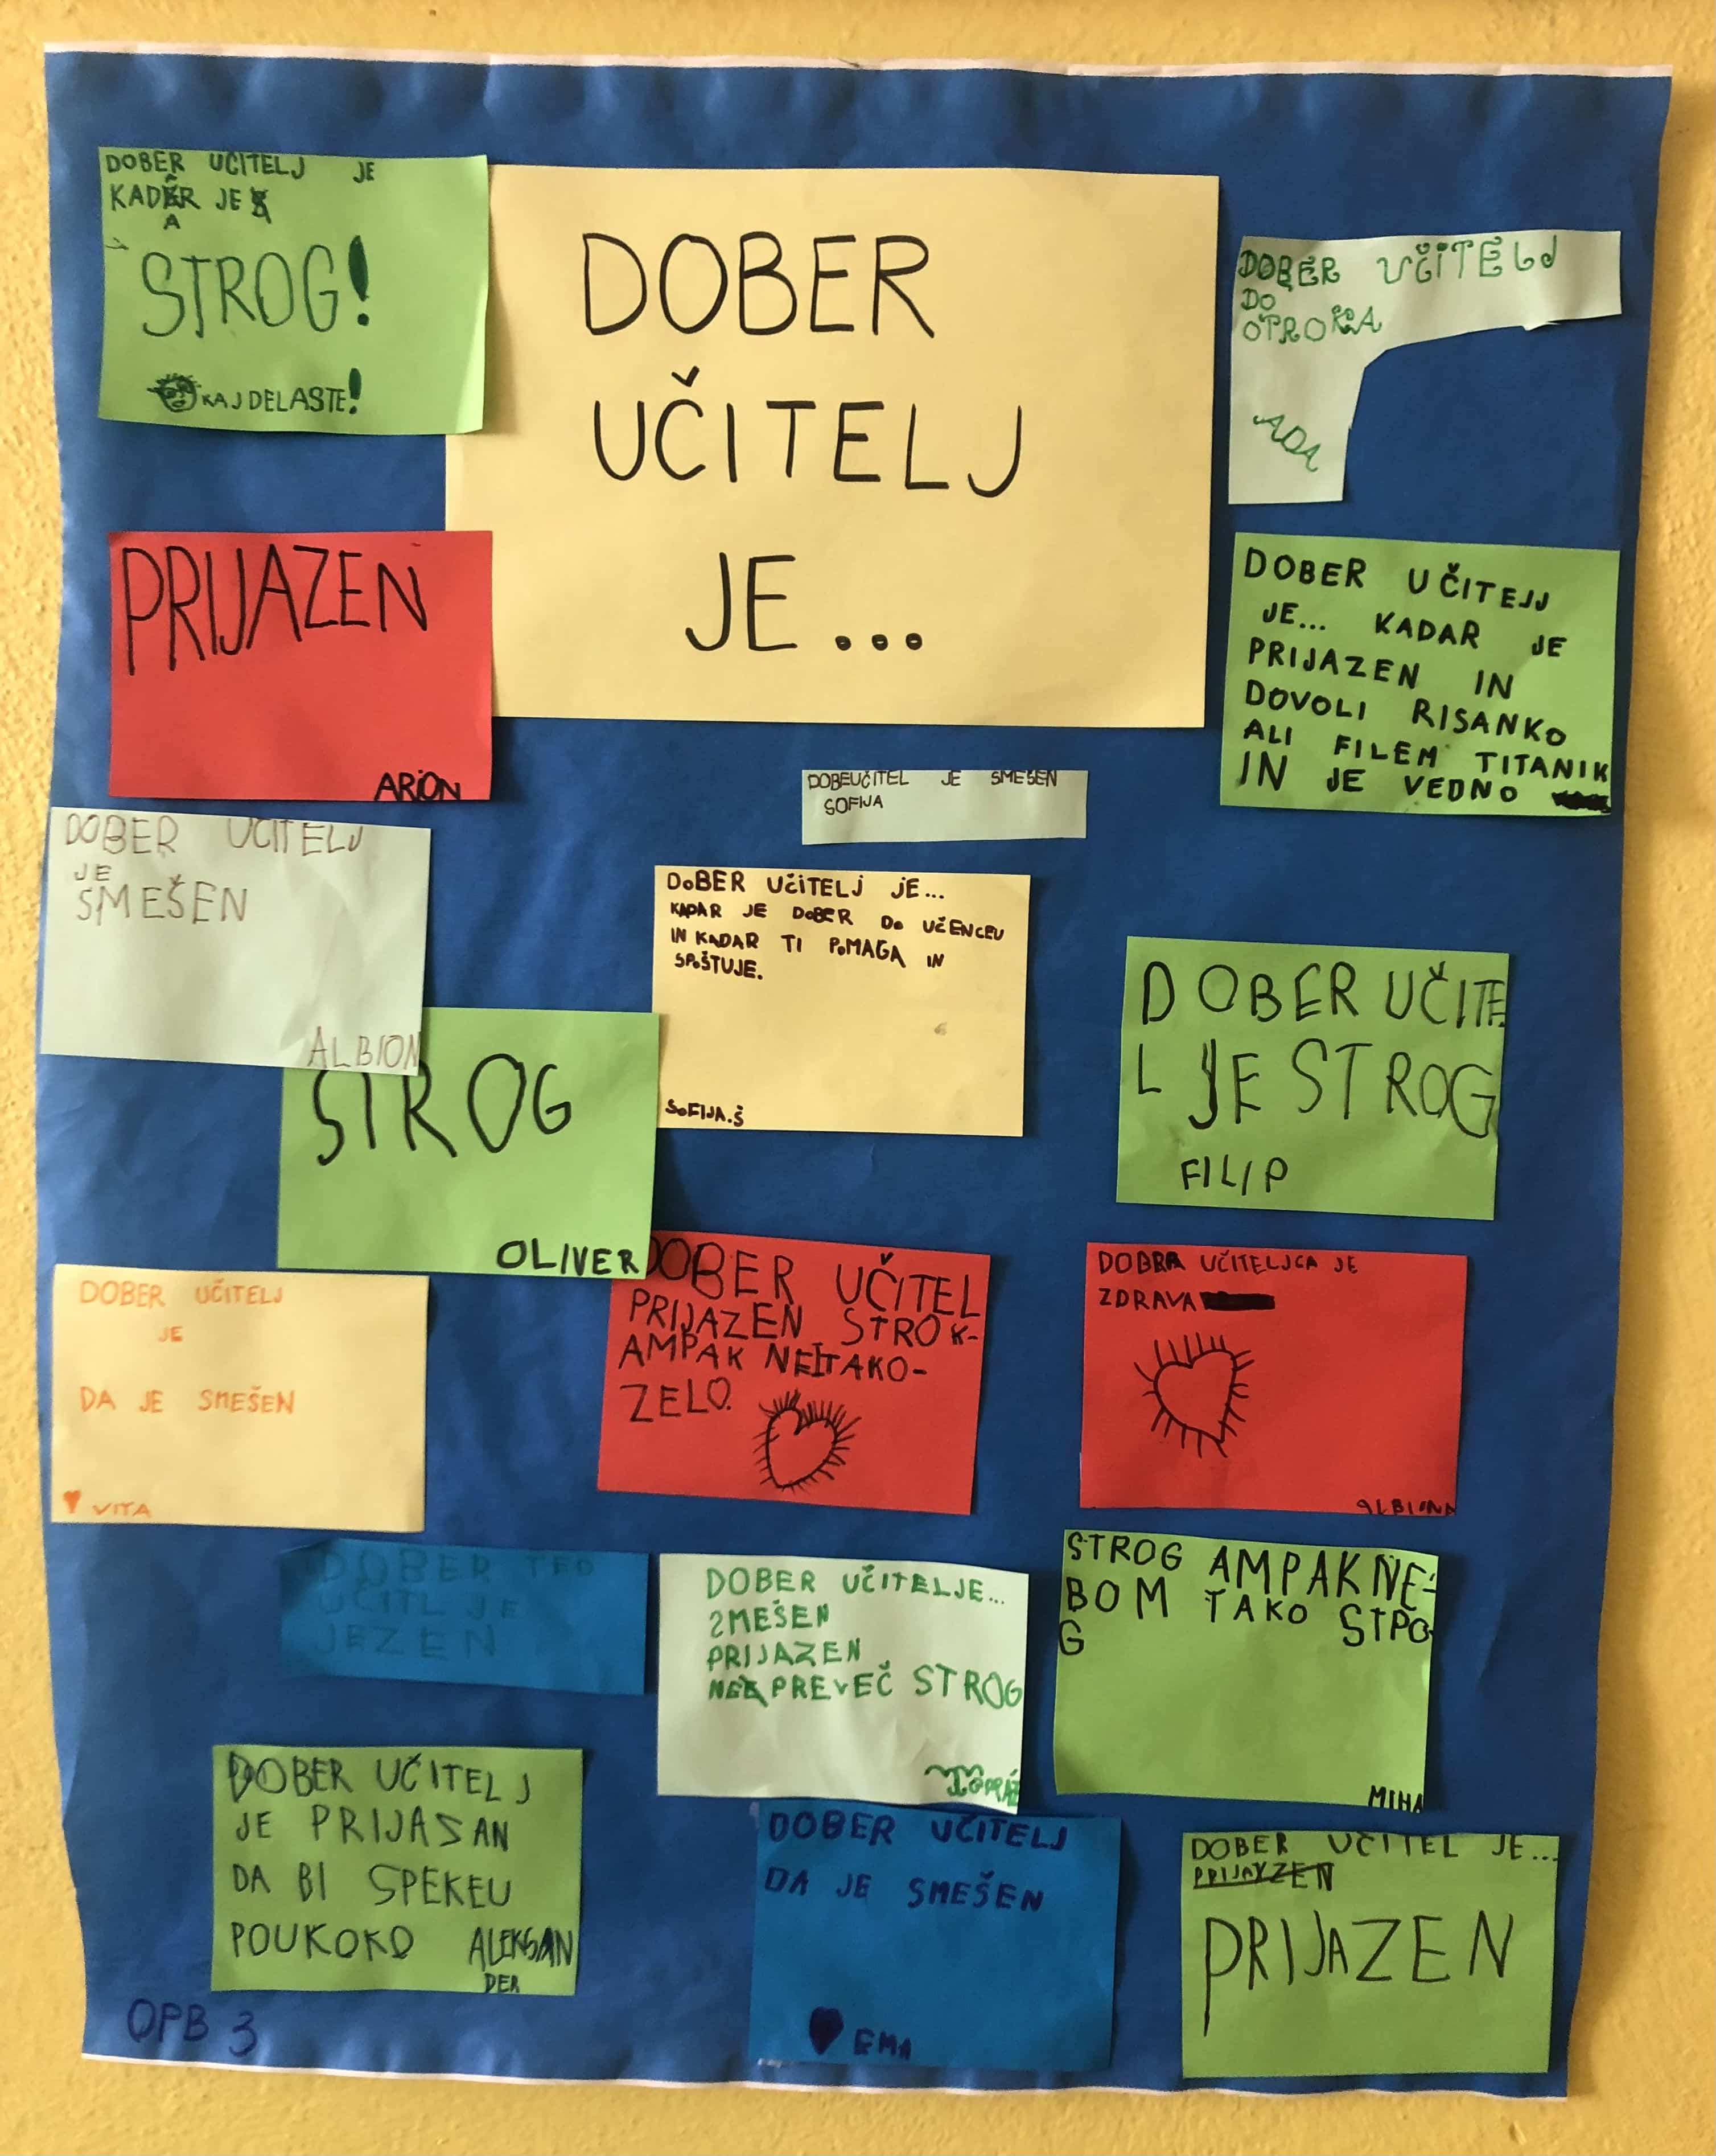 DOBER UČITELJ JE
KADAR JE
STROG!
KAJ DELASTE!
DOBER
UČITELJ
JE...
DOBER UČITELJ
DO
OTROKA
ADA
PRIJAZEN
ARION
DOBER UČITEJJ
JE... KADAR JE
PRIJAZEN IN
DOVOLI RISANKO
ALI FILEM TITANIK
IN JE VEDNO
DOBEUČITEL JE SMEŠEN
SOFIJA
DOBER UCITELJ
JE
SMEŠEN
ALBION
DOBER UČITELJ JE...
KADAR JE DOBER DO UČENCEU
IN KADAR TI POMAGA IN
SPOŠTUJE.
SOFIJA.Š
STROG
OLIVER
DOBER UČITE
L JE STROG
FILIP
DOBER UČITELJ
JE
DA JE SMEŠEN
VITA
DOBER UČITEL
PRIJAZEN STROK-
AMPAK NE TAKO-
ZELO.
DOBRA UČITELJCA JE
ZDRAVA
ALBIONA
DOBER TEO
UČITL JE
JEZEN
DOBER UČITELJE...
SMEŠEN
PRIJAZEN
NE PREVEČ STROG
STROG AMPAK NE-
BOM TAKO STPO
G
MIHA
DOBER UČITELJ
JE PRIJASAN
DA BI SPEKEU
POUKOKO ALEKSAN
DER
DOBER UČITELJ
DA JE SMEŠEN
EMA
DOBER UČITEL JE...
PRIJAZEN
OPB 3